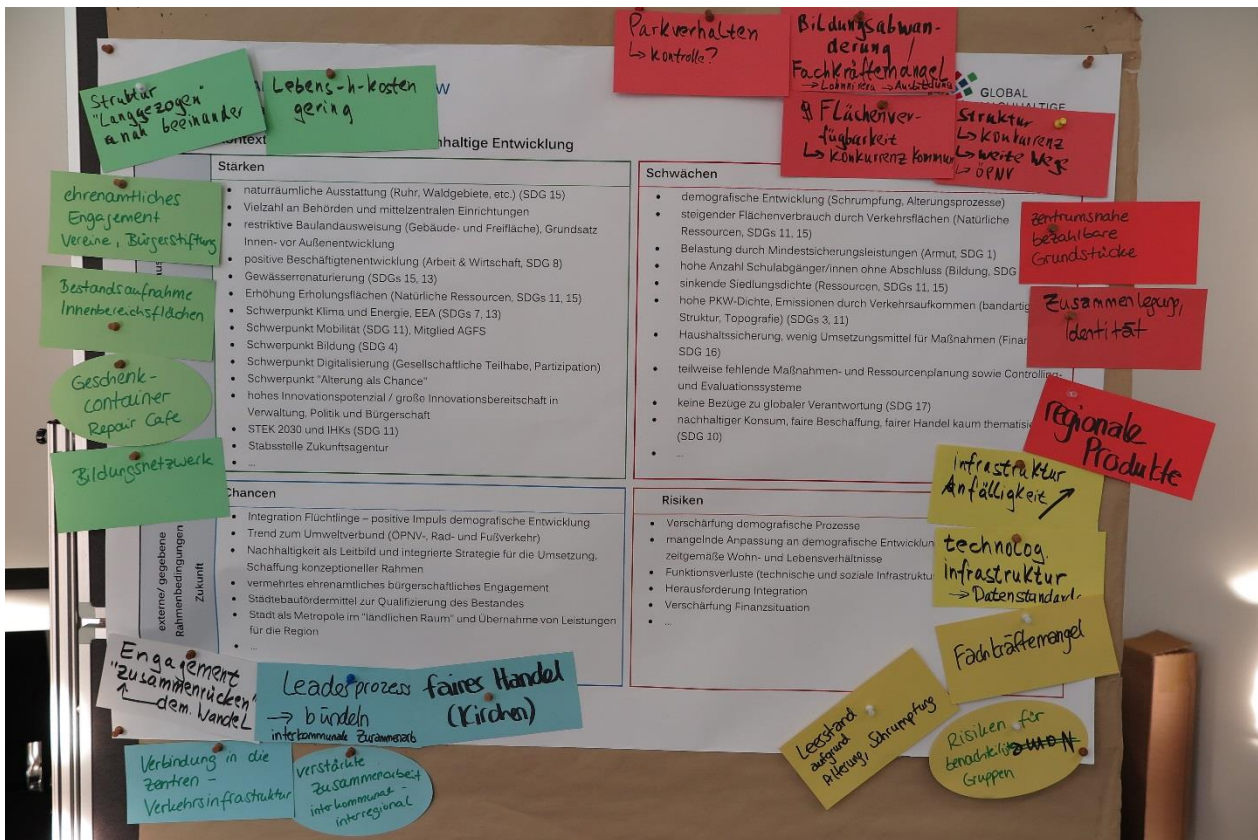 Struktur
"Langgezogen"
& nah beeinander
Lebens-h-kosten
gering
Parkverhalten
↳ Kontrolle?
Bildungsabwan-
derung /
Fachkräftemangel
→ Lohnniveau → Ausbildung
Flächenver-
fügbarkeit
↳ Konkurrenz Kommun
Struktur
↳ Konkurrenz
↳ weite Wege
↳ ÖPNV
GLOBAL
NACHHALTIGE
haltige Entwicklung
ehrenamtliches
Engagement
Vereine, Bürgerstiftung
Bestandsaufnahme
Innenbereichsflächen
Geschenk-
container
Repair Cafe
Bildungsnetzwerk
Stärken
• naturräumliche Ausstattung (Ruhr, Waldgebiete, etc.) (SDG 15)
• Vielzahl an Behörden und mittelzentralen Einrichtungen
• restriktive Baulandausweisung (Gebäude- und Freifläche), Grundsatz
Innen- vor Außenentwicklung
• positive Beschäftigtenentwicklung (Arbeit & Wirtschaft, SDG 8)
• Gewässerrenaturierung (SDGs 15, 13)
• Erhöhung Erholungsflächen (Natürliche Ressourcen, SDGs 11, 15)
• Schwerpunkt Klima und Energie, EEA (SDGs 7, 13)
• Schwerpunkt Mobilität (SDG 11), Mitglied AGFS
• Schwerpunkt Bildung (SDG 4)
• Schwerpunkt Digitalisierung (Gesellschaftliche Teilhabe, Partizipation)
• Schwerpunkt "Alterung als Chance"
• hohes Innovationspotenzial / große Innovationsbereitschaft in
Verwaltung, Politik und Bürgerschaft
• STEK 2030 und IHKs (SDG 11)
• Stabsstelle Zukunftsagentur
• ...
Schwächen
• demografische Entwicklung (Schrumpfung, Alterungsprozesse)
• steigender Flächenverbrauch durch Verkehrsflächen (Natürliche
Ressourcen, SDGs 11, 15)
• Belastung durch Mindestsicherungsleistungen (Armut, SDG 1)
• hohe Anzahl Schulabgänger/innen ohne Abschluss (Bildung, SDG
• sinkende Siedlungsdichte (Ressourcen, SDGs 11, 15)
• hohe PKW-Dichte, Emissionen durch Verkehrsaufkommen (bandartig
Struktur, Topografie) (SDGs 3, 11)
• Haushaltssicherung, wenig Umsetzungsmittel für Maßnahmen (Finan
SDG 16)
• teilweise fehlende Maßnahmen- und Ressourcenplanung sowie Controlling-
und Evaluationssysteme
• keine Bezüge zu globaler Verantwortung (SDG 17)
• nachhaltiger Konsum, faire Beschaffung, fairer Handel kaum thematisie
(SDG 10)
• ...
zentrumsnahe
bezahlbare
Grundstücke
Zusammenlegung,
Identität
regionale
Produkte
externe/ gegebene
Rahmenbedingungen
Zukunft
Chancen
• Integration Flüchtlinge – positive Impuls demografische Entwicklung
• Trend zum Umweltverbund (ÖPNV-, Rad- und Fußverkehr)
• Nachhaltigkeit als Leitbild und integrierte Strategie für die Umsetzung,
Schaffung konzeptioneller Rahmen
• vermehrtes ehrenamtliches bürgerschaftliches Engagement
• Städtebaufördermittel zur Qualifizierung des Bestandes
• Stadt als Metropole im "ländlichen Raum" und Übernahme von Leistungen
für die Region
• ...
Risiken
• Verschärfung demografische Prozesse
• mangelnde Anpassung an demografische Entwicklun
zeitgemäße Wohn- und Lebensverhältnisse
• Funktionsverluste (technische und soziale Infrastruktu
• Herausforderung Integration
• Verschärfung Finanzsituation
• ...
infrastruktur
Anfälligkeit
technolog.
infrastruktur
→ Datenstandard
Fachkräftemangel
Leerstand
aufgrund
Alterung, Schrumpfung
Risiken für
Gruppen
Engagement
"zusammenrücken"
dem. Wandel
Leaderprozess
→ bündeln
interkommunale Zusammenarb
faires Handel
(Kirchen)
Verbindung in die
Zentren –
Verkehrsinfrastruktur
verstärkte
Zusammenarbeit
interkommunal –
interregional